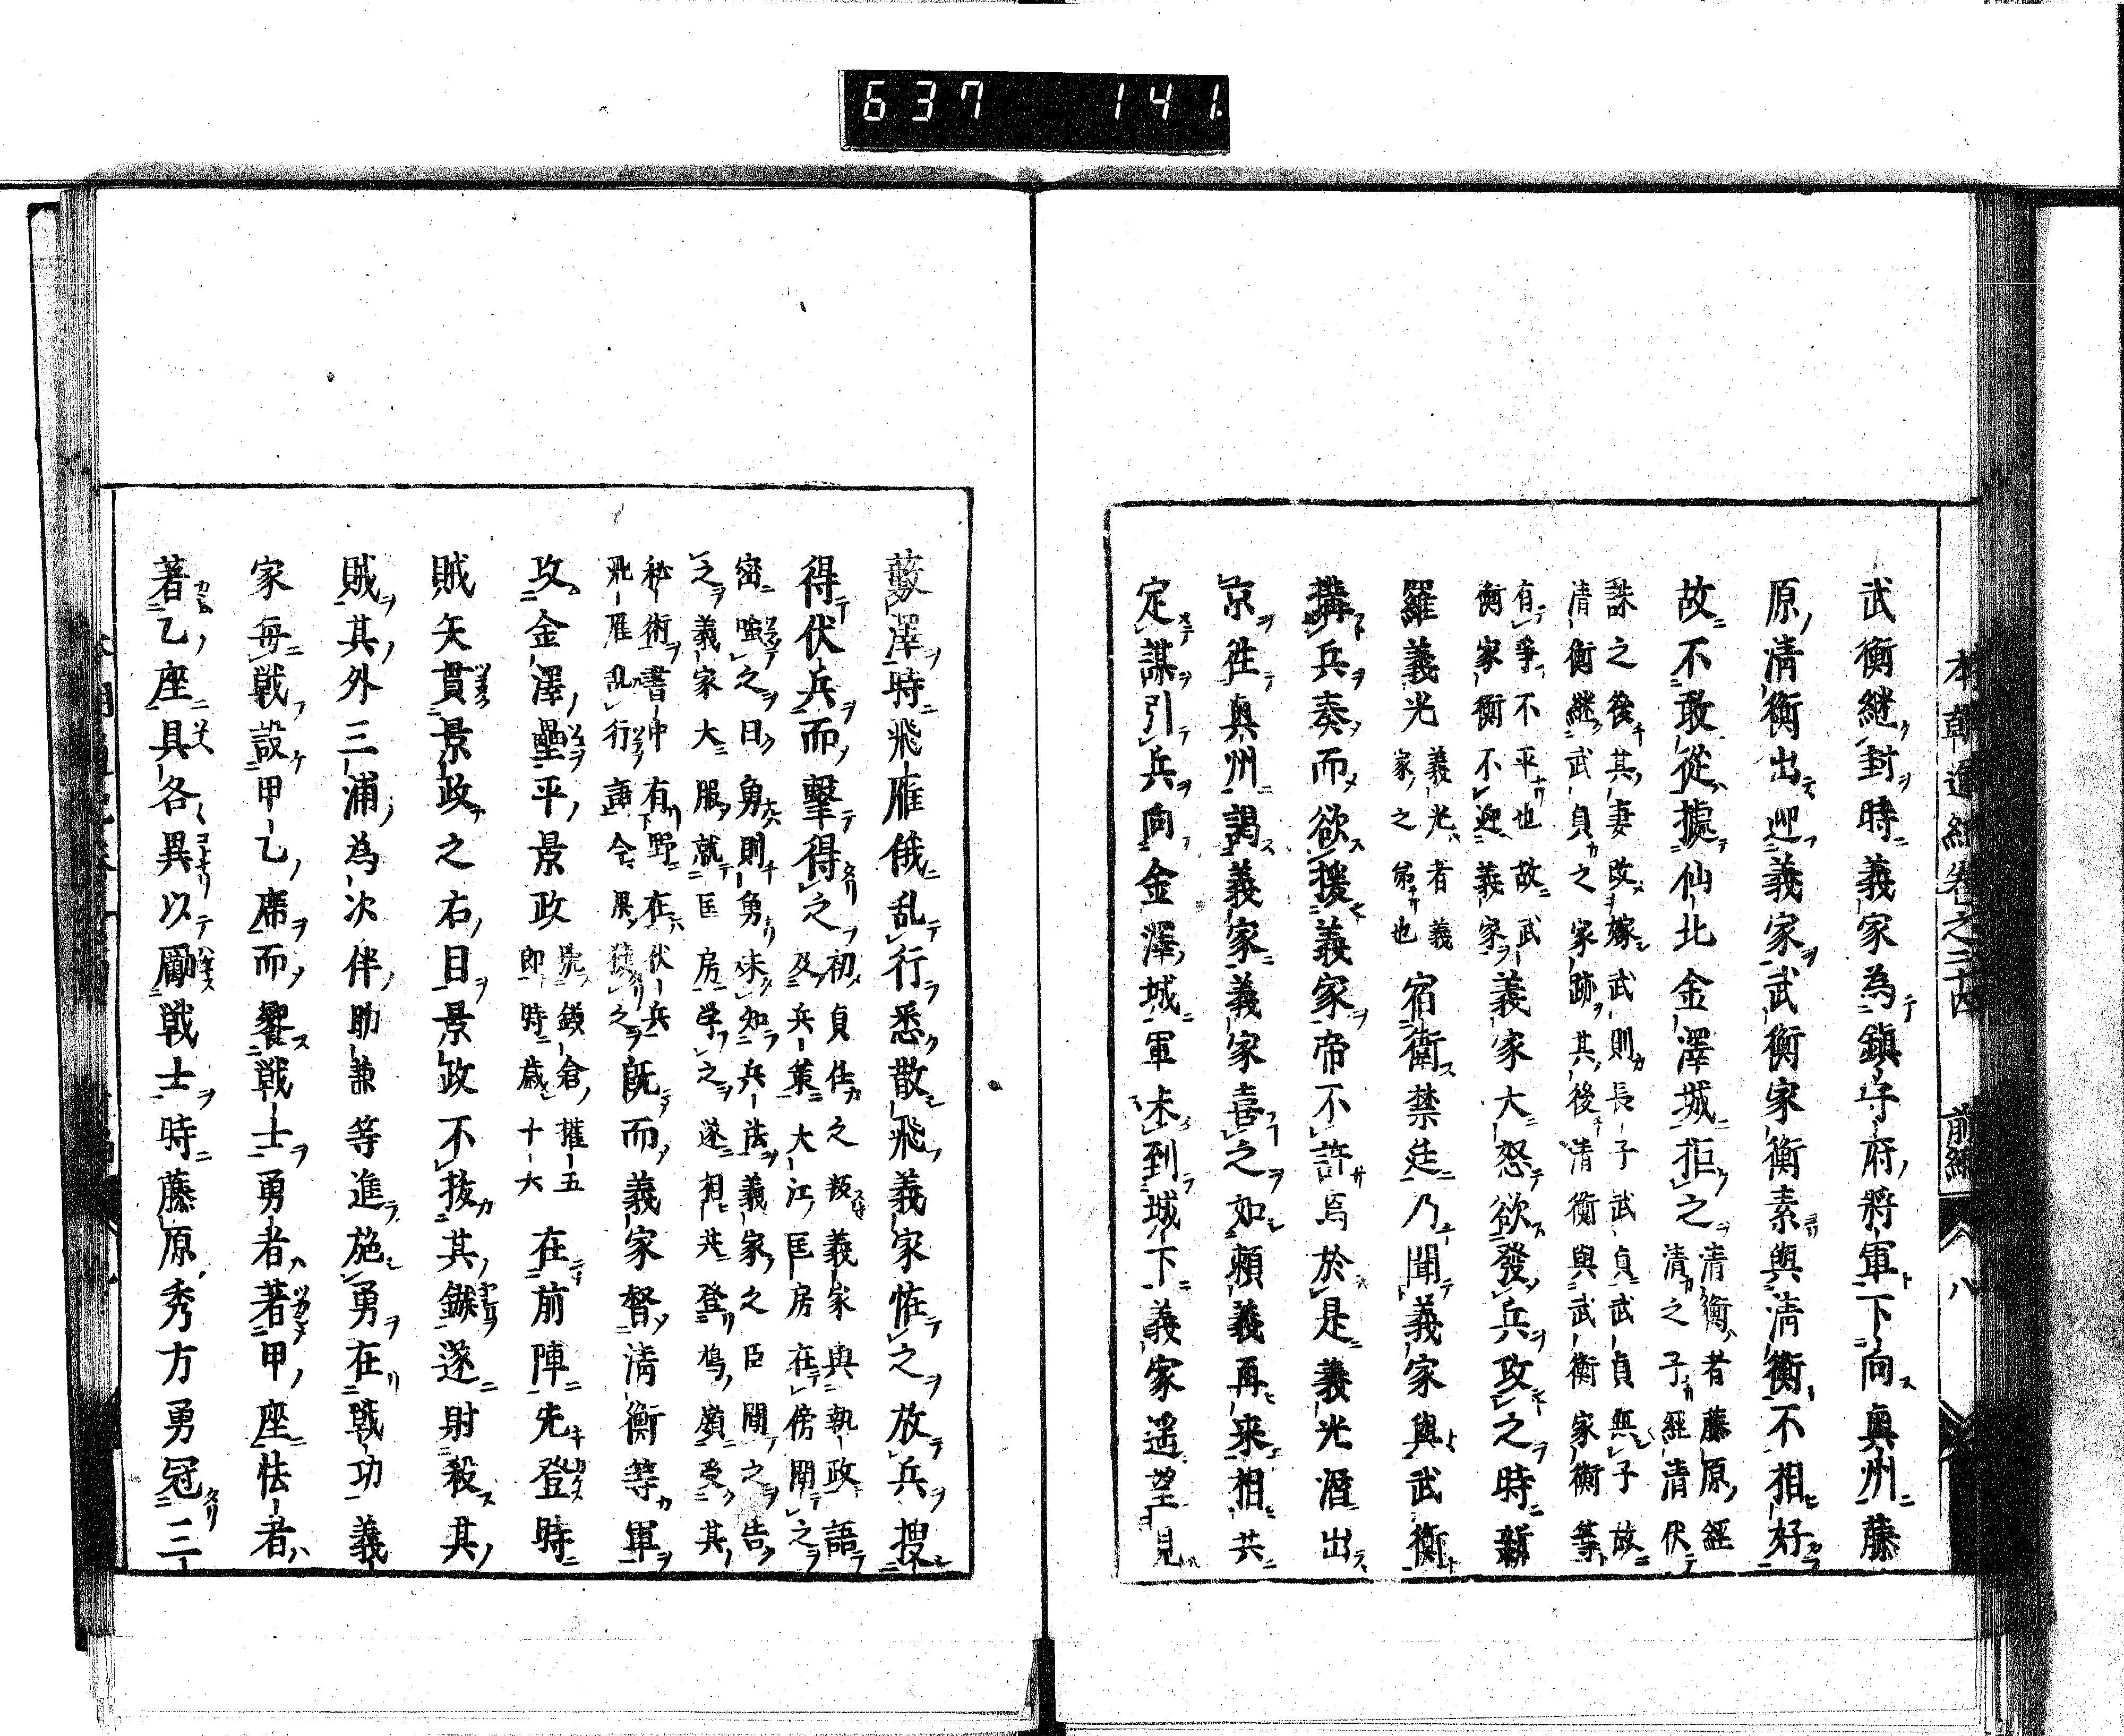 637 141
本朝通紀卷之二十四 前編 八
武衡継封時義家為鎮守府將軍下向奥州藤
原清衡出迎義家武衡家衡素與清衡不相好
故不敢從據仙北金澤城拒之清衡者藤原經
清之子經清伏
誅之後其妻改嫁武則長子武貞武貞無子故
清衡継武貞之家跡其後清衡與武衡家衡等
有爭不平也故武
衡家衡不迎義家義家大怒欲發兵攻之時新
羅義光義光者義
家之弟也宿衛禁廷乃聞義家與武衡
搆兵奏而欲援義家帝不許焉於是義光潛出
京徃奥州謁義家義家喜之如頼義再來相共
定謀引兵向金澤城軍未到城下義家遥望見
薮澤時飛雁俄乱行悉散飛義家恠之放兵搜
得伏兵而擊得之初貞任之叛義家與執政語
及兵策大江匡房在傍聞之
密嗤之曰勇則勇未知兵法義家之臣聞之告
之義家大服就匡房学之遂相共登鳩嶺受其
秘術書中有野在伏兵
飛雁乱行語今果獲之既而義家督清衡等軍
攻金澤壘平景政号鎌倉權五
即時歳十六在前陣先登時
賊矢貫景政之右目景政不抜其鏃遂射殺其
賊其外三浦為次伴助兼等進施勇在戰功義
家毎戰設甲乙席而饗戰士勇者著甲座怯者
著乙座具各異以勵戰士時藤原秀方勇冠三